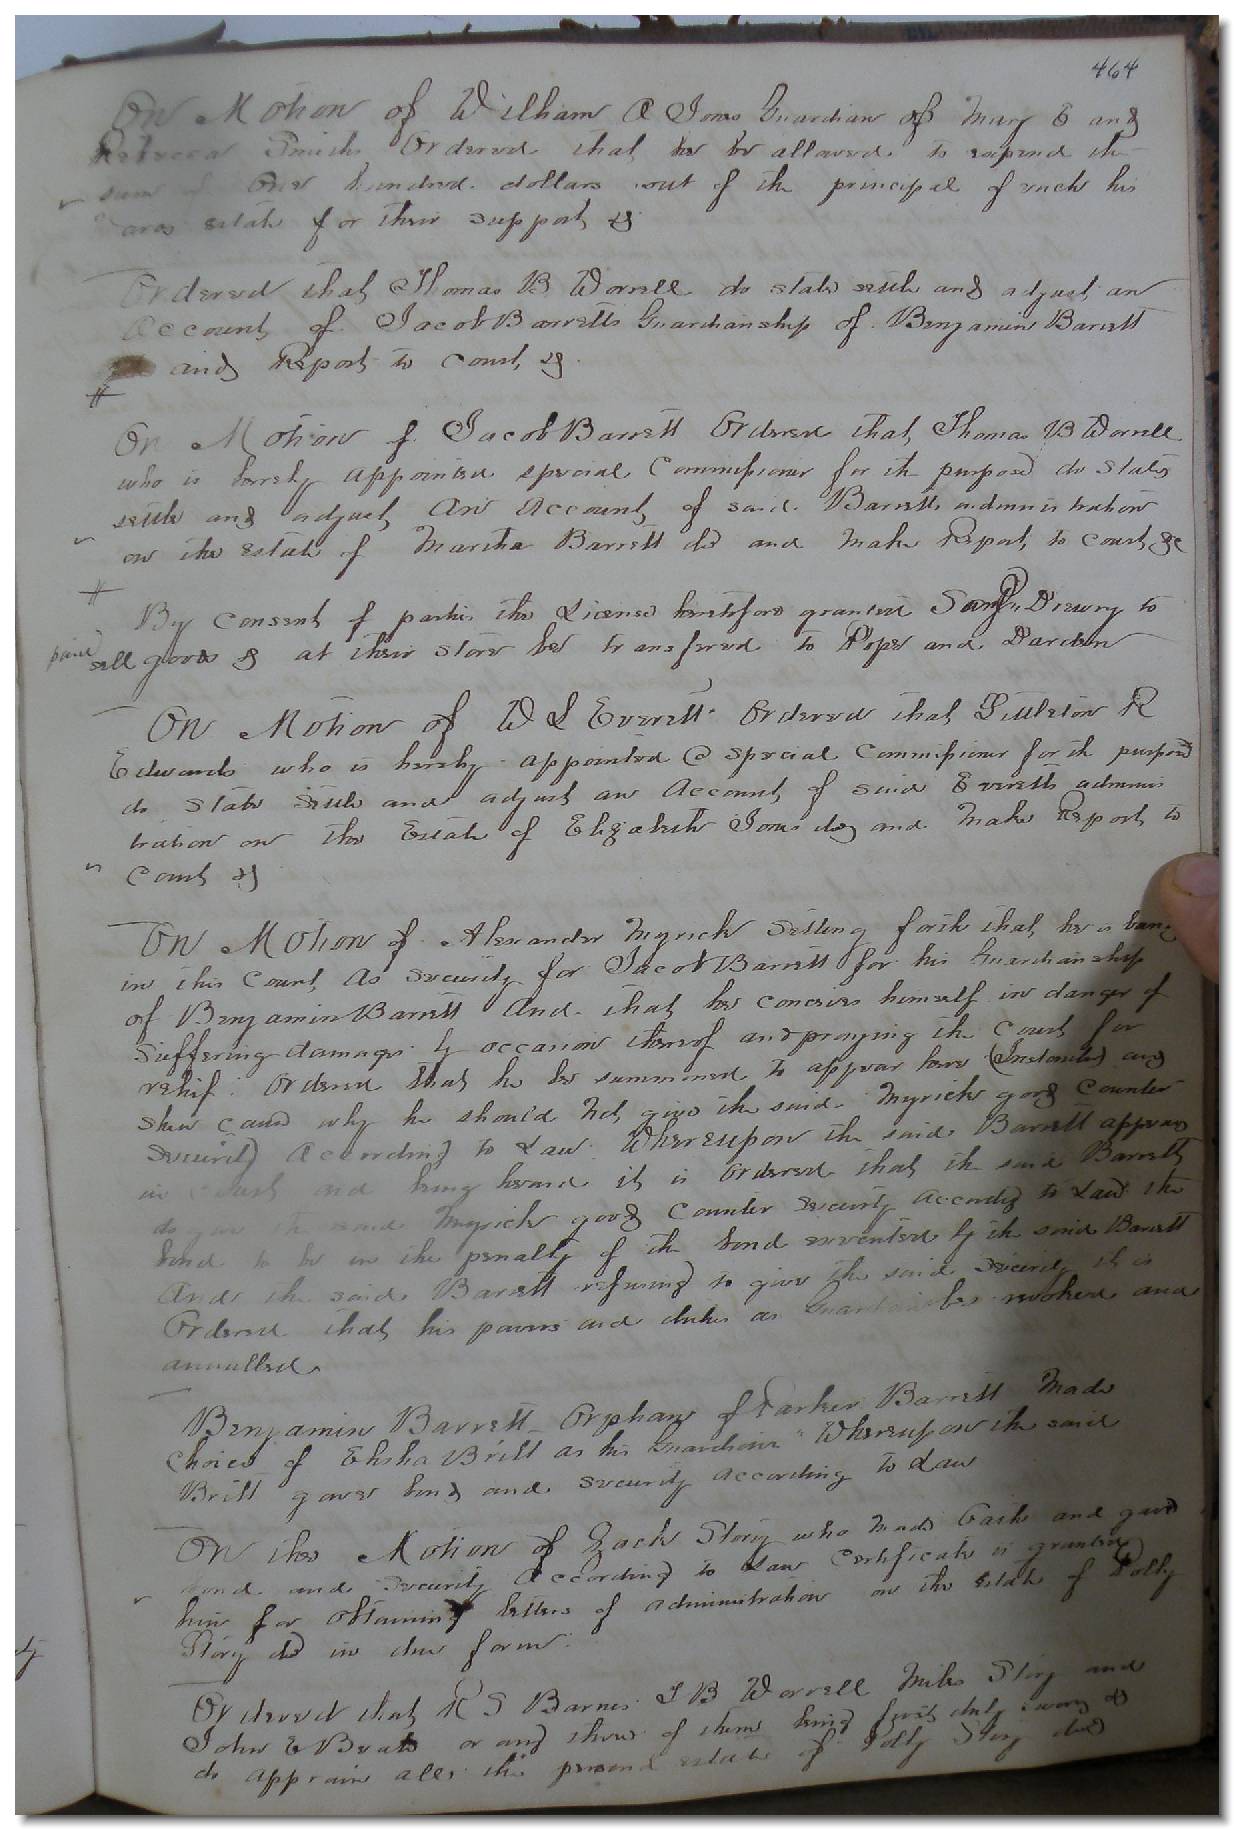 464
On Motion of William A Jones Guardian of Mary E and
Rebecca Smith Ordered that he be allowed to expend the
sum of One hundred dollars out of the principal of each his
wards estate for their support &
Ordered that Thomas B Worrell do state settle and adjust an
Account of Jacob Barretts Guardianship of Benjamin Barrett
and Report to Court &
On Motion of Jacob Barrett Ordered that Thomas B Worrell
who is hereby appointed special Commissioner for the purpose do state
settle and adjust An Account of said Barretts administration
on the estate of Martha Barrett decd and make Report to Court &c
By Consent of parties the License heretofore granted Drewry to
paid sell goods & at their store be transferred to Pope and Darden
On Motion of W L Everett Ordered that Littleton R
Edwards who is hereby appointed a special Commissioner for the purpose
do state settle and adjust an Account of said Everetts adminis
tration on the Estate of Elizabeth Jones decd and make Report to
Court &
On Motion of Alexander Myrick Setting forth that he is bound
in this Court As security for Jacob Barrett for his Guardianship
of Benjamin Barrett And that he conceives himself in danger of
suffering damage by occasion thereof and praying the Court for
relief. Ordered that he be summoned to appear here (Instanter) and
shew cause why he should not give the said Myrick good Counter
security According to Law Whereupon the said Barrett appeared
in Court and being heard it is Ordered that the said Barrett
do give the said Myrick good Counter security According to Law the
bond to be in the penalty of the bond executed by the said Barrett
And the said Barrett refusing to give the said security it is
Ordered that his powers and duties as Guardian be revoked and
annulled.
Benjamin Barrett Orphan of Parker Barrett Made
Choice of Elisha Britt as his Guardian Whereupon the said
Britt gave bond and security according to Law
On the Motion of Zack Story who made Oath and gave
bond and security According to Law Certificate is granted
him for obtaining letters of administration on the estate of Polly
Story decd in due form.
Ordered that R S Barnes T B Worrell Miles Story and
John E Beale or any three of them being first duly sworn &
do appraise all the personal estate of Polly Story decd